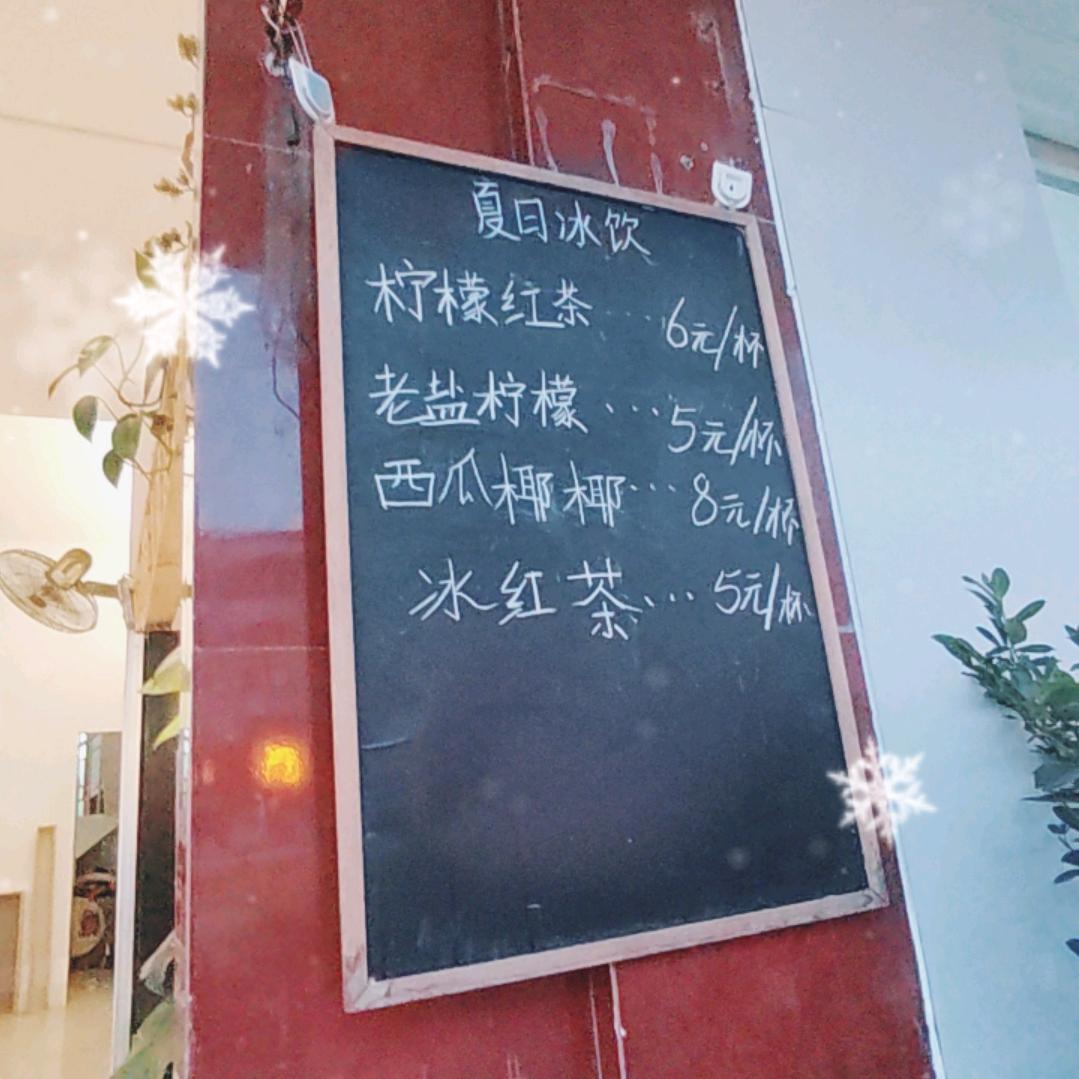 夏日冰饮
柠檬红茶....6元/杯
老盐柠檬...5元/杯
西瓜椰椰...8元/杯
冰红茶...5元/杯